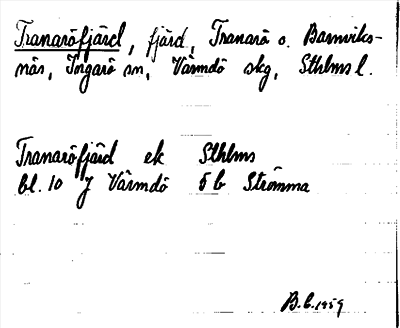 Tranaröfjärd, fjärd, Tranarö o. Barnviks-
näs, Ingarö sn, Värmdö skg, Sthlms l.
Tranaröfjärd ek Sthlms
bl. 10 J Värmdö 5b Strömma
B.C. 1959